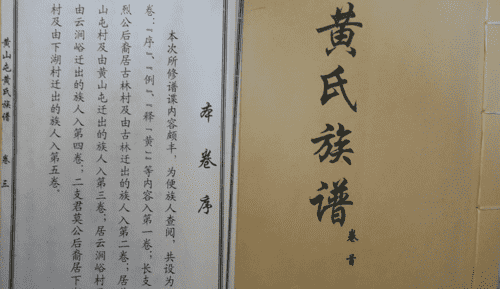 黄氏族谱
卷首
本卷序
本次所修谱谍内容颇丰，为便族人查阅，共设为
卷：“序”、“例”、“释‘黄’”等内容入第一卷；长支
烈公后裔居古林村及由古林迁出的族人入第二卷；居
山屯村及由黄山屯迁出的族人入第三卷；居云涧峪村
由云涧峪迁出的族人入第四卷；二支君莫公后裔居下
村及由下湖村迁出的族人入第五卷。
黄山屯黄氏族谱
卷三